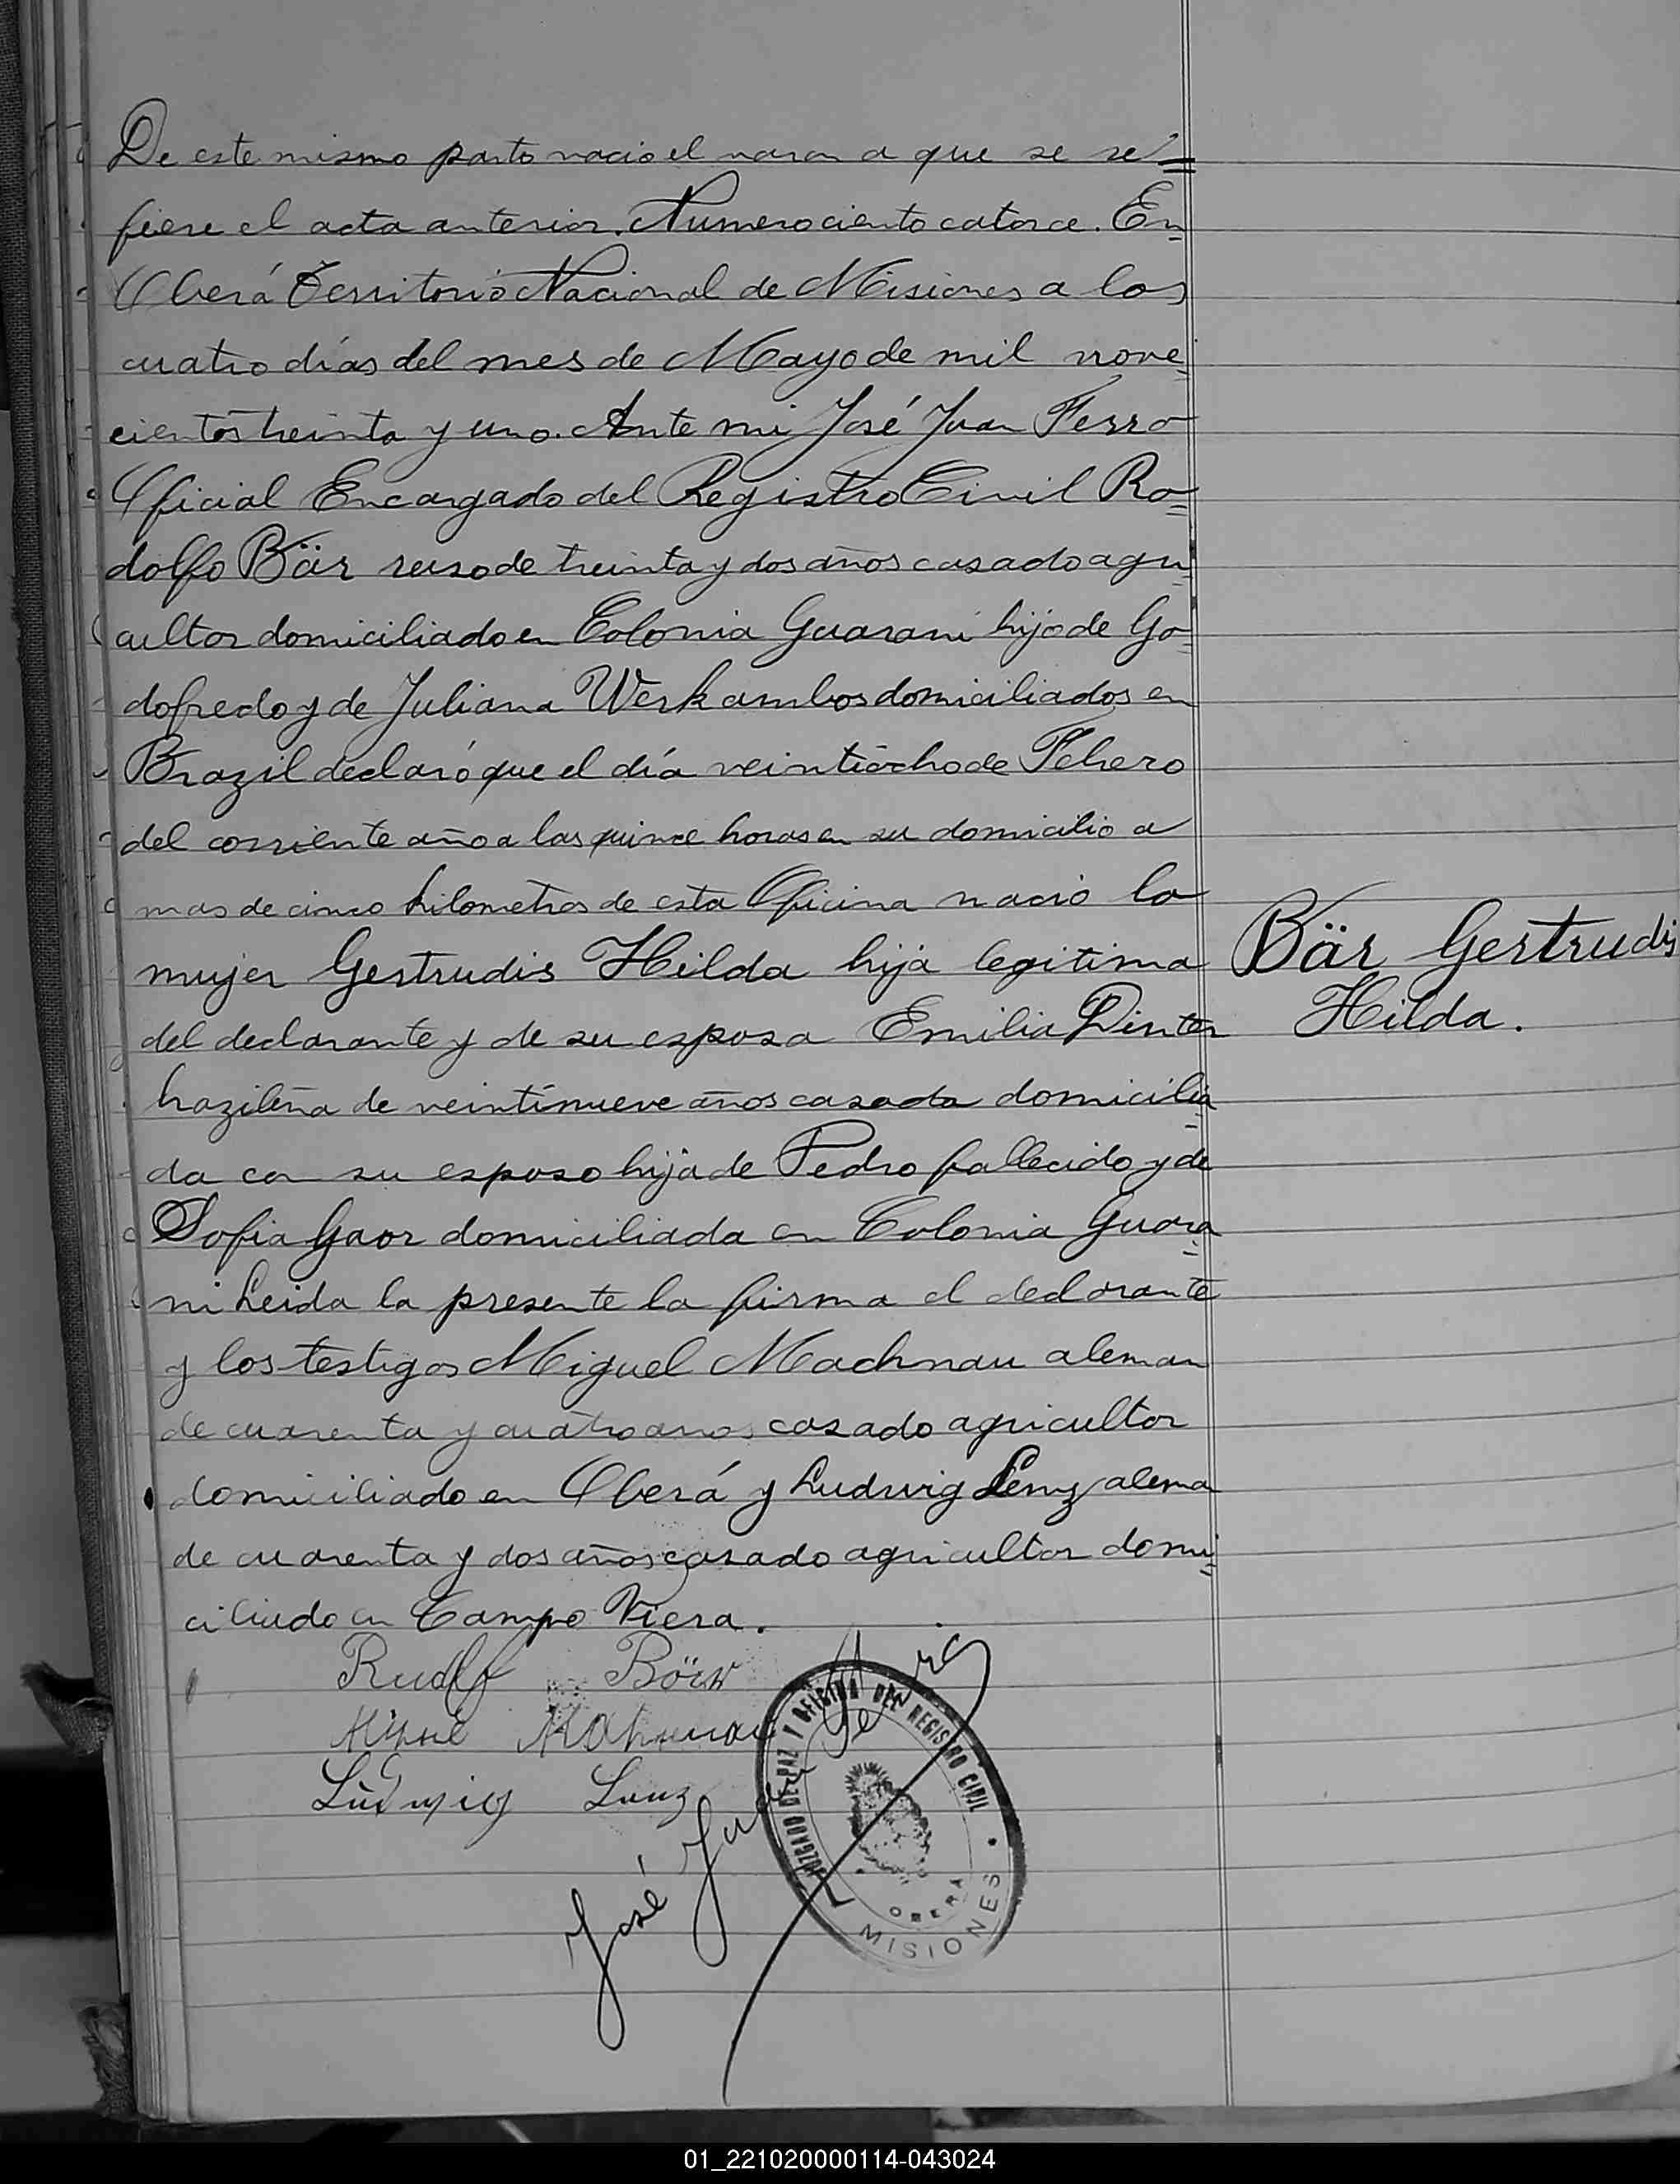 De este mismo parto nacio el varon a que se re=
fiere el acta anterior. Numero ciento catorce. En
Oberá Territorio Nacional de Misiones a los
cuatro días del mes de Mayo de mil nove=
cientos treinta y uno. Ante mi José Juan Ferro
Oficial Encargado del Registro Civil Ro=
dolfo Bär ruso de treinta y dos años casado agri
cultor domiciliado en Colonia Guarani hijo de Go=
dofredo y de Juliana Werk ambos domiciliados en
Brazil declaró que el día veintiocho de Febrero
del corriente año a las quince horas en su domicilio a
mas de cinco kilometros de esta Oficina nacio la
mujer Gertrudis Hilda hija legitima
Bär Gertrudis
del declarante y de su esposa Emilia Dinter
Hilda.
brazileña de veintinueve años casada domicilia=
da con su esposo hija de Pedro fallecido y de
Sofia Gaor domiciliada en Colonia Guara=
ni Leida la presente la firma el declarante
y los testigos Miguel Machnau aleman
de cuarenta y cuatro anos casado agricultor
domiciliado en Oberá y Ludwig Lenz alema
de cuarenta y dos años casado agricultor domi=
ciliado en Campo Viera.
Rudolf Bär
Ludwig Lenz
José Juan Ferro
JUZGADO DE PAZ Y OFICINA DEL REGISTRO CIVIL
OBERA
MISIONES
01_221020000114-043024